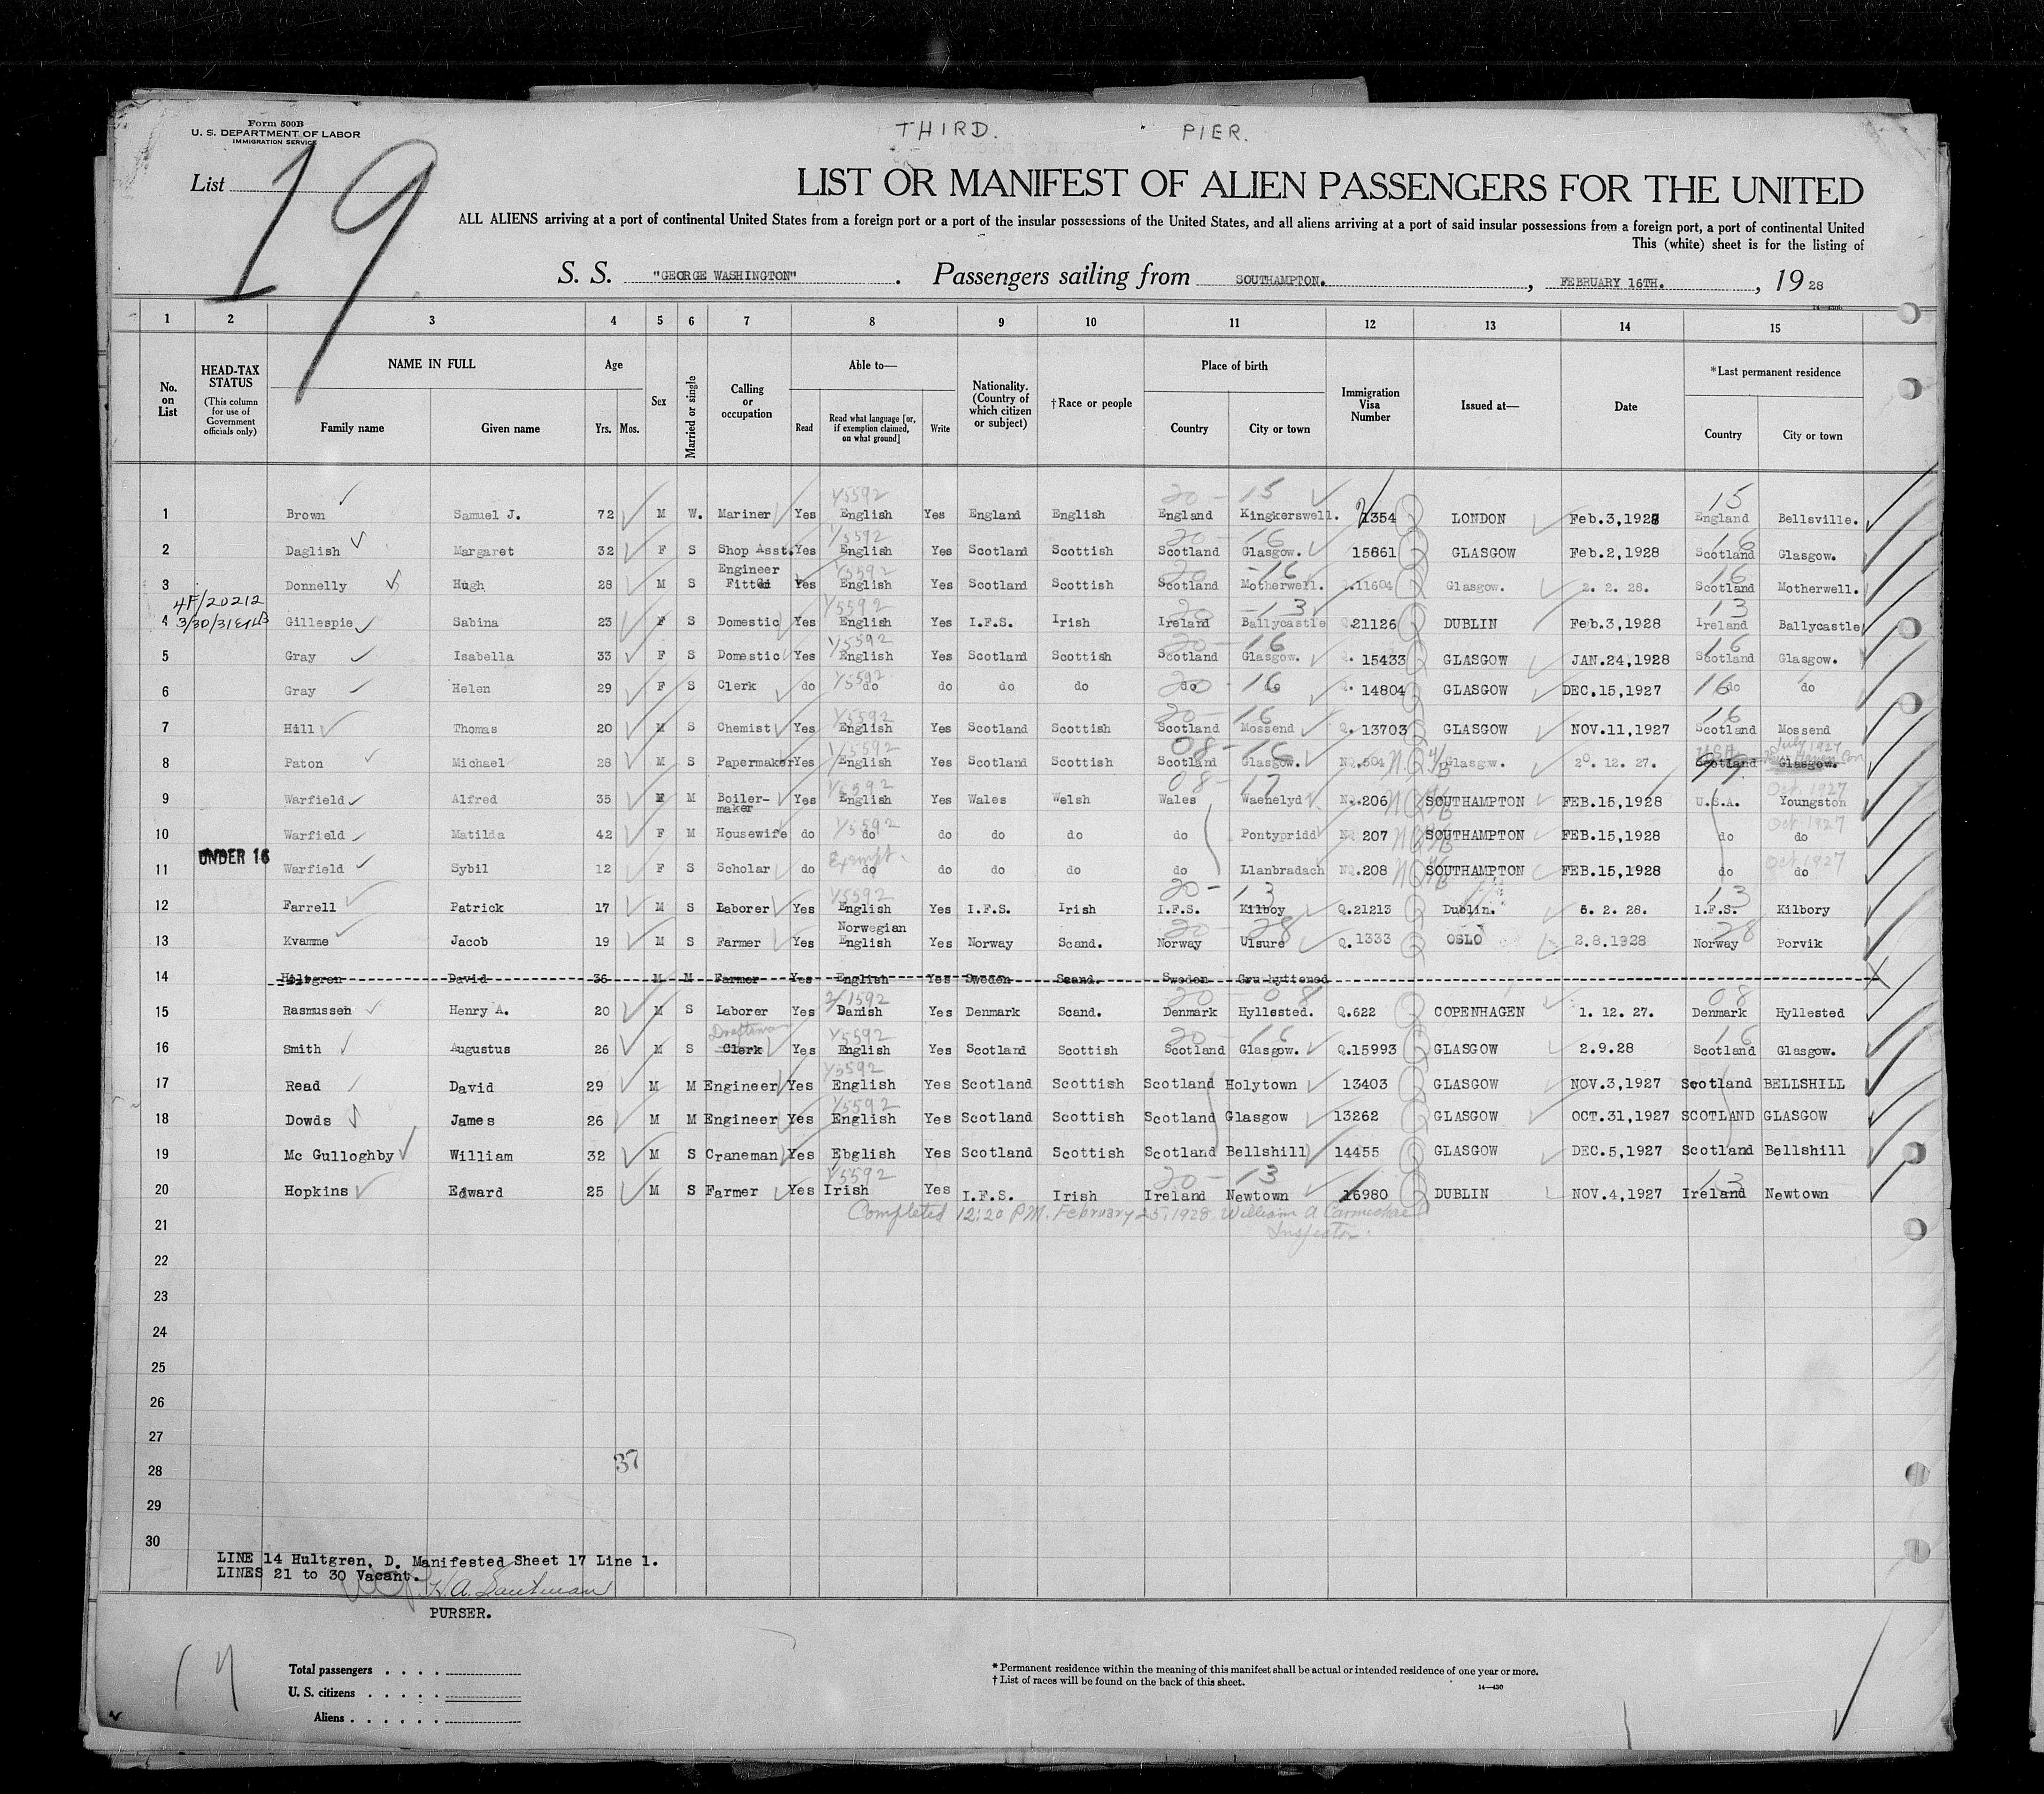 THIRD. PIER.
Form 500B
U. S. DEPARTMENT OF LABOR
IMMIGRATION SERVICE
List 19
LIST OR MANIFEST OF ALIEN PASSENGERS FOR THE UNITED
ALL ALIENS arriving at a port of continental United States from a foreign port or a port of the insular possessions of the United States, and all aliens arriving at a port of said insular possessions from a foreign port, a port of continental United
This (white) sheet is for the listing of
S. S. "GEORGE WASHINGTON" . Passengers sailing from SOUTHAMPTON. , FEBRUARY 16TH. , 19 28
1 2 3 4 5 6 7 8 9 10 11 12 13 14 15
No. on List
HEAD-TAX STATUS (This column for use of Government officials only)
NAME IN FULL Family name Given name
Age Yrs. Mos.
Sex
Married or single
Calling or occupation
Able to— Read Read what language [or, if exemption claimed, on what ground] Write
Nationality. (Country of which citizen or subject)
†Race or people
Place of birth Country City or town
Immigration Visa Number
Issued at—
Date
*Last permanent residence Country City or town
1/5592 20 - 15 15
1 Brown Samuel J. 72 M W. Mariner Yes English Yes England English England Kingkerswell. 1354 LONDON Feb.3,1928 England Bellsville.
1/5592 20 - 16 16
2 Daglish Margaret 32 F S Shop Asst. Yes English Yes Scotland Scottish Scotland Glasgow. 15661 GLASGOW Feb.2,1928 Scotland Glasgow.
Engineer 1/5592 20 - 16 16
3 Donnelly Hugh 28 M S Yes English Yes Scotland Scottish Scotland Motherwell. Q.11604 Glasgow. 2. 2. 28. Scotland Motherwell.
4F/20212 1/5592 20 - 13 13
3/30/31
4 Gillespie Sabina 23 F S Domestic Yes English Yes I.F.S. Irish Ireland Ballycastle Q.21126 DUBLIN Feb.3,1928 Ireland Ballycastle
1/5592 20 - 16 16
5 Gray Isabella 33 F S Domestic Yes English Yes Scotland Scottish Scotland Glasgow. Q. 15433 GLASGOW JAN.24,1928 Scotland Glasgow.
1/5592 20 - 16 16
6 Gray Helen 29 F S Clerk do do do do do do do Q. 14804 GLASGOW DEC.15,1927 do do
1/5592 20 - 16 16
7 Hill Thomas 20 M S Chemist Yes English Yes Scotland Scottish Scotland Mossend Q. 13703 GLASGOW NOV.11,1927 Scotland Mossend
1/5592 08 - 16 U.S.A. July 1927
8 Paton Michael 28 M S Papermaker Yes English Yes Scotland Scottish Scotland Glasgow. NQ.504 Glasgow. 20. 12. 27. Scotland Glasgow.
1/5592 08 - 17 Oct. 1927
9 Warfield Alfred 35 M M Boiler- maker Yes English Yes Wales Welsh Wales Waehelyd NQ.206 SOUTHAMPTON FEB.15,1928 U.S.A. Youngston
1/5592 Oct. 1927
10 Warfield Matilda 42 F M Housewife do do do do do do Pontypridd NQ 207 SOUTHAMPTON FEB.15,1928 do do
UNDER 16 Exempt. Oct. 1927
11 Warfield Sybil 12 F S Scholar do do do do do do Llanbradach NQ.208 SOUTHAMPTON FEB.15,1928 do do
1/5592 20 - 13 13
12 Farrell Patrick 17 M S Laborer Yes English Yes I.F.S. Irish I.F.S. Kilboy Q.21213 Dublin. 6. 2. 28. I.F.S. Kilbory
Norwegian 20 - 28 28
13 Kvamme Jacob 19 M S Farmer Yes English Yes Norway Scand. Norway Ulsure Q.1333 OSLO 2.8.1928 Norway Porvik
14 Hultgren David 36 M M Farmer Yes English Yes Sweden Scand. Sweden Gruhyttened
2/1592 20 - 08 08
15 Rasmussen Henry A. 20 M S Laborer Yes Danish Yes Denmark Scand. Denmark Hyllested. Q.622 COPENHAGEN 1. 12. 27. Denmark Hyllested
Draftsman 1/5592 20 - 16 16
16 Smith Augustus 26 M S Clerk Yes English Yes Scotland Scottish Scotland Glasgow. Q.15993 GLASGOW 2.9.28 Scotland Glasgow.
1/5592
17 Read David 29 M M Engineer Yes English Yes Scotland Scottish Scotland Holytown 13403 GLASGOW NOV.3,1927 Scotland BELLSHILL
1/5592
18 Dowds James 26 M M Engineer Yes English Yes Scotland Scottish Scotland Glasgow 13262 GLASGOW OCT.31,1927 SCOTLAND GLASGOW
19 Mc Gulloghby William 32 M S Craneman Yes Ebglish Yes Scotland Scottish Scotland Bellshill 14455 GLASGOW DEC.5,1927 Scotland Bellshill
1/5592 20 - 13 13
20 Hopkins Edward 25 M S Farmer Yes Irish Yes I.F.S. Irish Ireland Newtown 16980 DUBLIN NOV.4,1927 Ireland Newtown
Completed 12:20 P.M. February 25, 1928 William A Carmichael
Inspector.
21
22
23
24
25
26
27
37
28
29
30
LINE 14 Hultgren, D. Manifested Sheet 17 Line 1.
LINES 21 to 30 Vacant.
PURSER.
Total passengers . . . .
U. S. citizens . . . . .
Aliens . . . . . .
* Permanent residence within the meaning of this manifest shall be actual or intended residence of one year or more.
† List of races will be found on the back of this sheet.
14—430